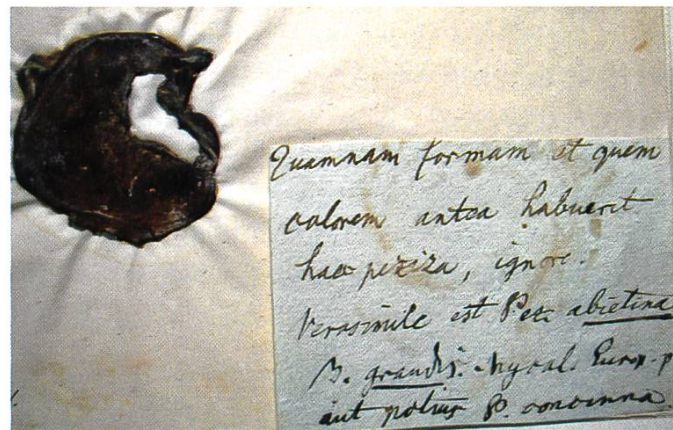 Quamnam formam et quem
colorem antea habuerit
haec peziza, ignoro.
Verosimile est Pez. abietina
β. grandis. Mycol. Europ. p
aut potius P. concinna